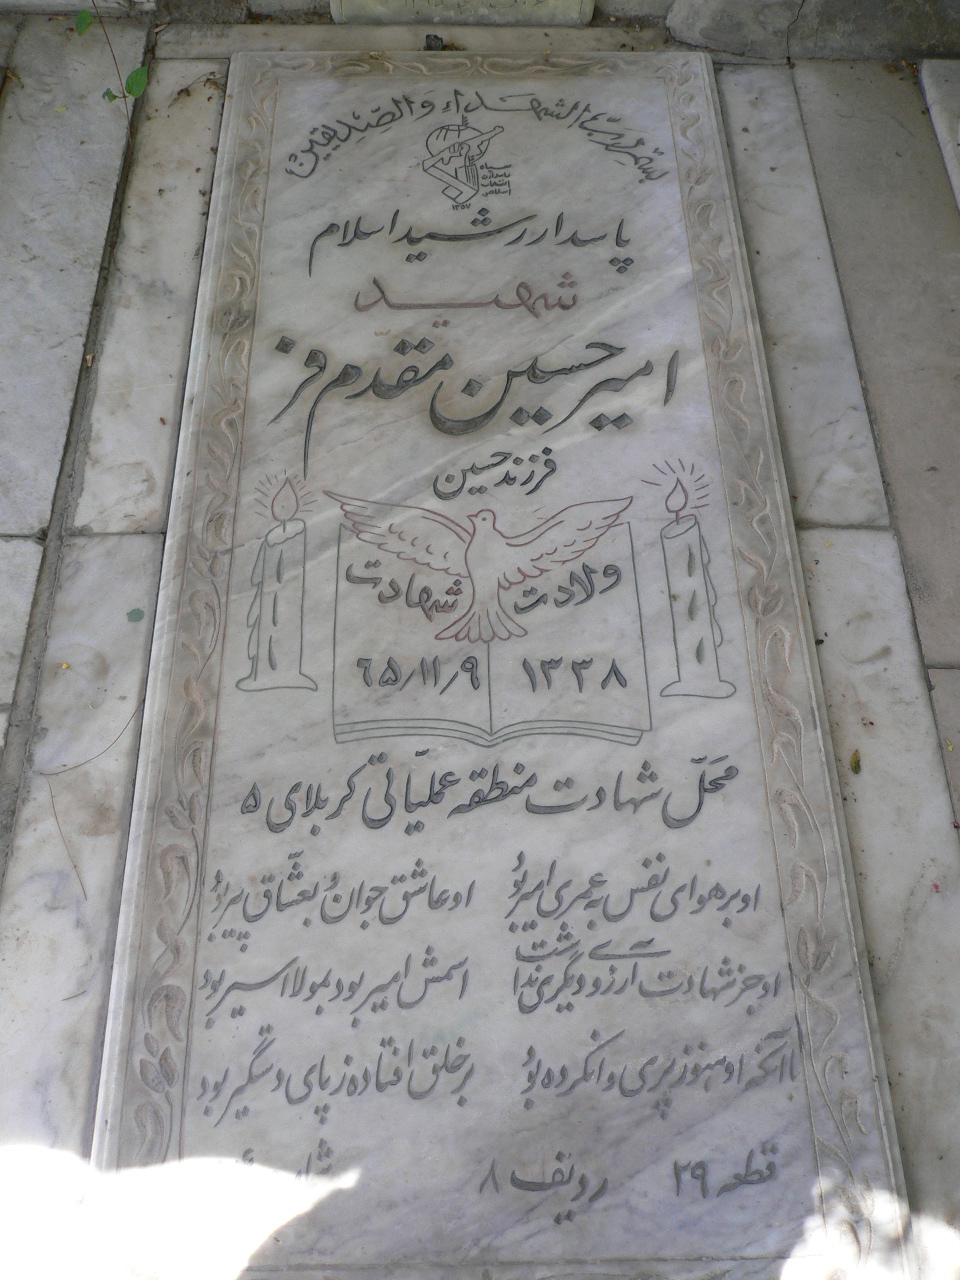 بسم رب الشهداء والصدیقین
سپاه
پاسداران
انقلاب
اسلامی
۱۳۵۷
پاسدار رشید اسلام
شهید
امیر حسین مقدم فر
فرزند حسین
ولادت شهادت
۱۳۳۸ ۶۵/۱۱/۹
محل شهادت منطقه عملیاتی کربلای ۵
او بر هوای نفس به عمری امیر بود او عاشق جوان و بعشاق پیر بود
او جز شهادت آرزوی دیگری نداشت اسمش امیر بود بمولا اسیر بود
با آنکه او هنوز پری وانکرده بود بر خلق افتاده ز پای دستگیر بود
قطعه ۲۹ ردیف ۸